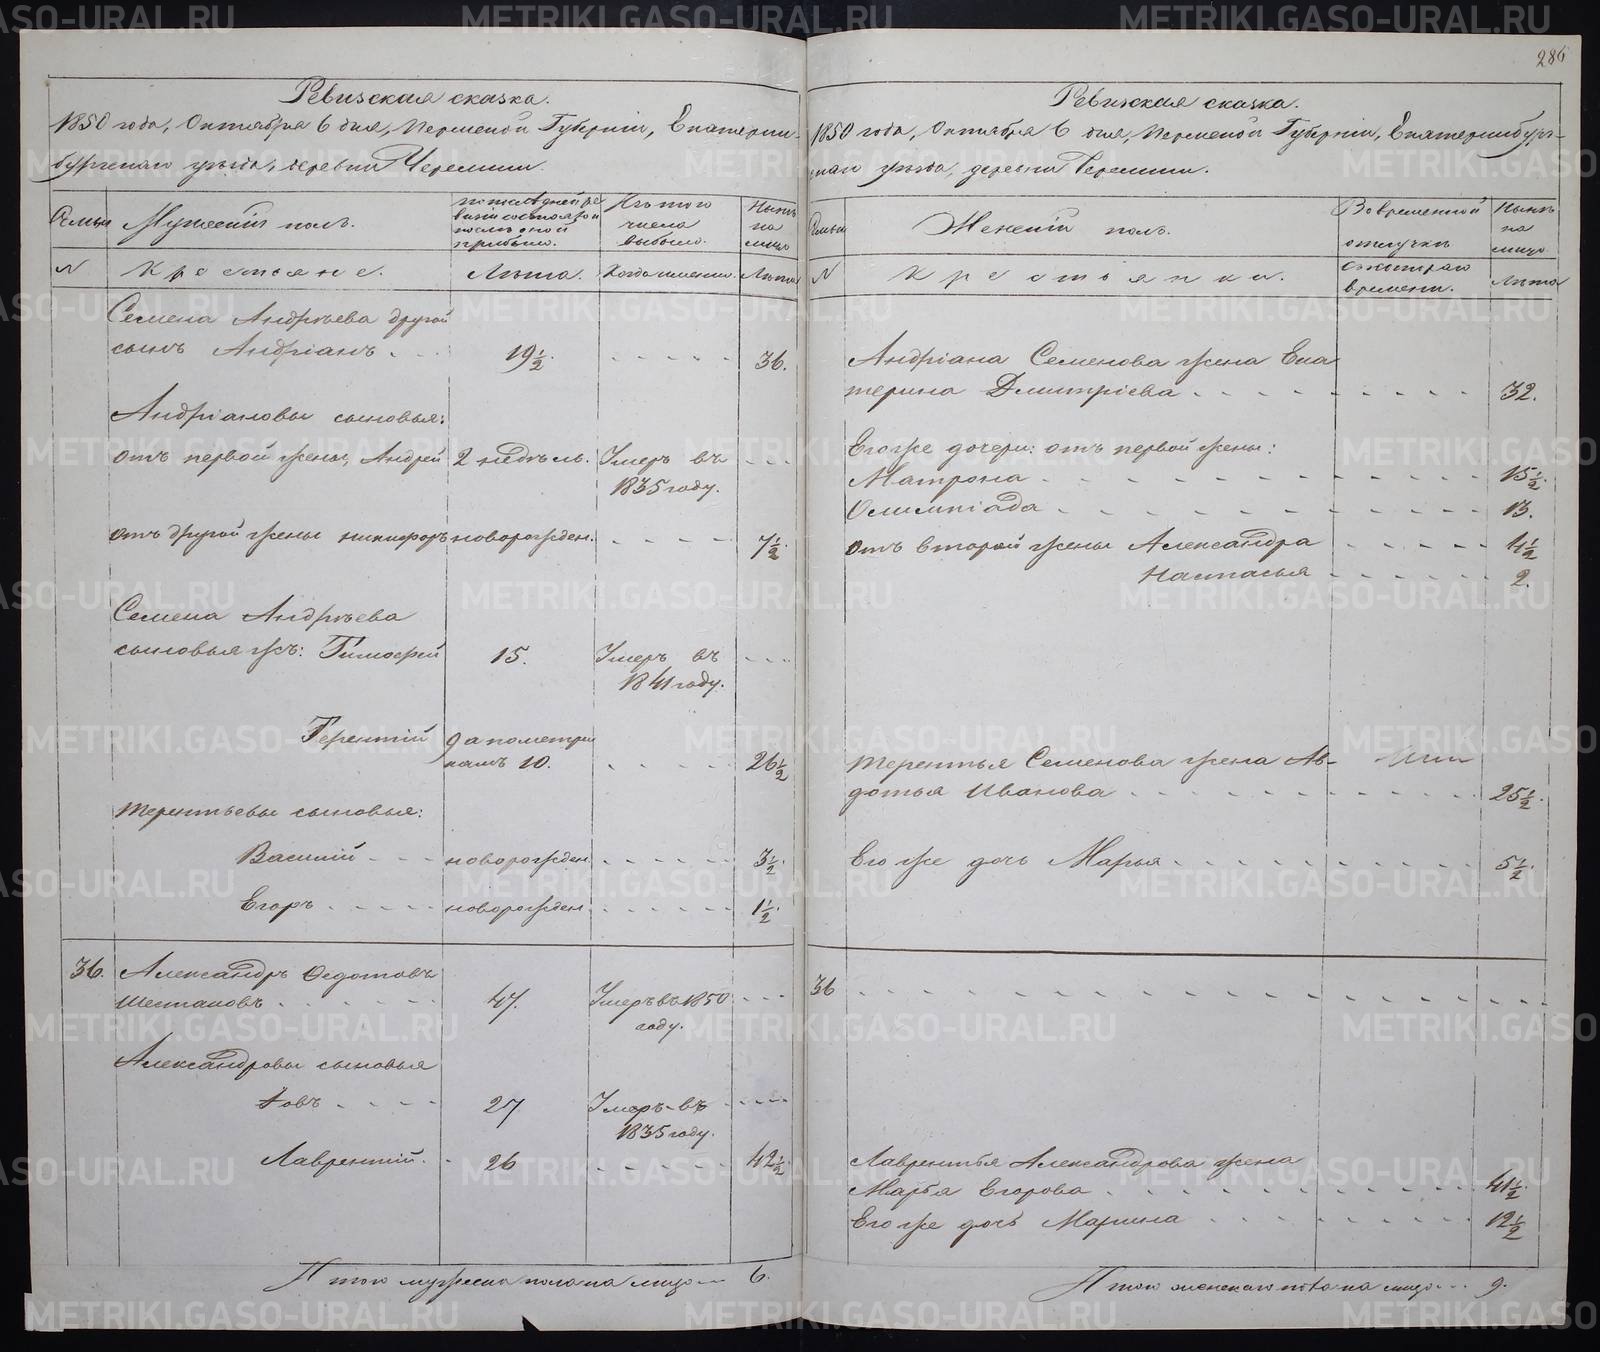 286
Ревизская сказка.
1850 года, Октября 6 дня, Пермской Губерніи, Екатерин-
бургскаго уѣзда, деревни Черемши.
Семьи
Мужескій полъ.
По послѣдней ре
визіи состояло и
послѣ оной
прибыло.
Изъ того
числа
выбыло.
Нынѣ
на
лицо
N
Крестьяне.
Лѣта.
Когда именно.
Лѣта
Семена Андрѣева другой
сынъ Андріанъ . 19½. 36.
Андріановы сыновья:
отъ первой жены, Андрей 2 недѣль. Умеръ въ
1835 году.
отъ другой жены Никифоръ новорожден. 7½.
Семена Андрѣева
сыновья жъ: Тимофей 15. Умеръ въ
1841 году.
Терентій 9 а по метри
камъ 10. 26½
Терентьевы сыновья:
Василій новорожден. 3½.
Егоръ новорожден. 1½
36. Александръ Федотовъ
Шестаковъ 47. Умеръ въ 1850
году.
Александровы сыновья
Іовъ 27 Умеръ въ
1835 году.
Лаврентій. 26 42½
Итого мужеска пола на лицо 6.
Ревизская сказка.
1850 года, Октября 6 дня, Пермской Губерніи, Екатеринбург-
скаго уѣзда, деревни Черемши.
Семьи
Женскій полъ.
Во временной
отлучкѣ
Нынѣ
на
лицо
N
Крестьянки.
Съ котораго
времени.
Лѣта
Андріана Семенова жена Ека
терина Дмитріева 32.
Его же дочери: отъ первой жены:
Матрона 15½.
Олимпіада 13.
отъ второй жены Александра 4½
Настасья 2.
Терентья Семенова жена Ав-
дотья Иванова 25½.
Его же дочь Марья 5½.
36
Лаврентья Александрова жена
Марья Егорова 41½.
Его же дочь Марина 12½
Итого женскаго пола на лицо 9.
METRIKI.GASO-URAL.RU